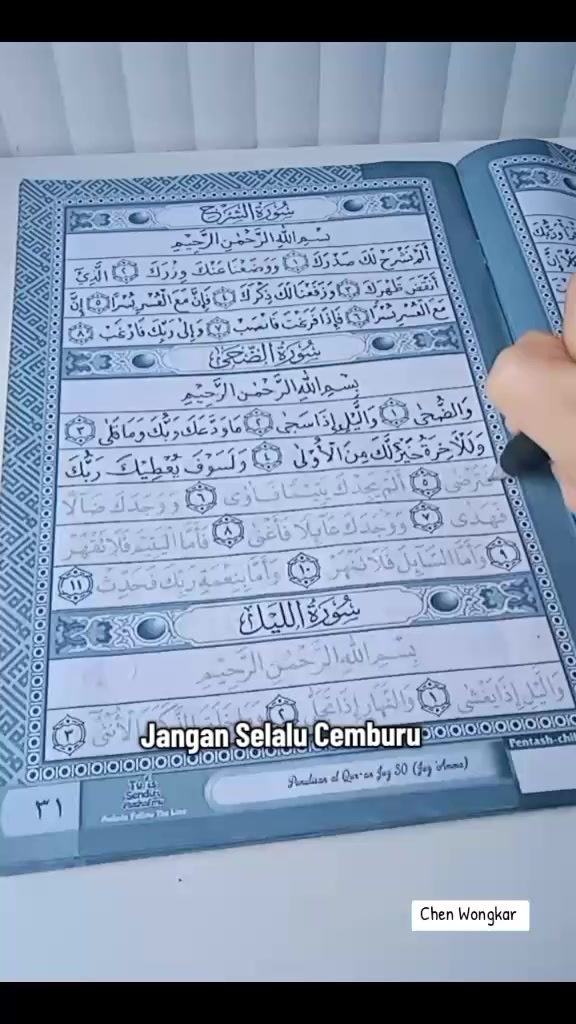 سُورَةُ الشَّرْحِ
بِسْمِ اللّٰهِ الرَّحْمٰنِ الرَّحِيْمِ
أَلَمْ نَشْرَحْ لَكَ صَدْرَكَ ١ وَوَضَعْنَا عَنْكَ وِزْرَكَ ٢ الَّذِيْٓ
أَنْقَضَ ظَهْرَكَ ٣ وَرَفَعْنَا لَكَ ذِكْرَكَ ٤ فَإِنَّ مَعَ الْعُسْرِ يُسْرًا ٥ إِنَّ
مَعَ الْعُسْرِ يُسْرًا ٦ فَإِذَا فَرَغْتَ فَانْصَبْ ٧ وَإِلَى رَبِّكَ فَارْغَبْ ٨
سُورَةُ الضُّحَى
بِسْمِ اللّٰهِ الرَّحْمٰنِ الرَّحِيْمِ
وَالضُّحَى ١ وَالَّيْلِ إِذَا سَجَى ٢ مَا وَدَّعَكَ رَبُّكَ وَمَا قَلَى ٣
وَلَلْآخِرَةُ خَيْرٌ لَّكَ مِنَ الْأُوْلَى ٤ وَلَسَوْفَ يُعْطِيْكَ رَبُّكَ
فَتَرْضَى ٥ أَلَمْ يَجِدْكَ يَتِيْمًا فَآوَى ٦ وَوَجَدَكَ ضَآلًّا
فَهَدَى ٧ وَوَجَدَكَ عَآئِلًا فَأَغْنَى ٨ فَأَمَّا الْيَتِيْمَ فَلَا تَقْهَرْ
٩ وَأَمَّا السَّآئِلَ فَلَا تَنْهَرْ ١٠ وَأَمَّا بِنِعْمَةِ رَبِّكَ فَحَدِّثْ ١١
سُورَةُ اللَّيْلِ
بِسْمِ اللّٰهِ الرَّحْمٰنِ الرَّحِيْمِ
وَالَّيْلِ إِذَا يَغْشَى ١ وَالنَّهَارِ إِذَا تَجَلَّى ٢ وَالْأُنْثَى ٣
Jangan Selalu Cemburu
Pentash-chi
Penulisan al Qur-an Juz 30 (Juz 'Amma)
Metode Follow The Line
٣١
Chen Wongkar